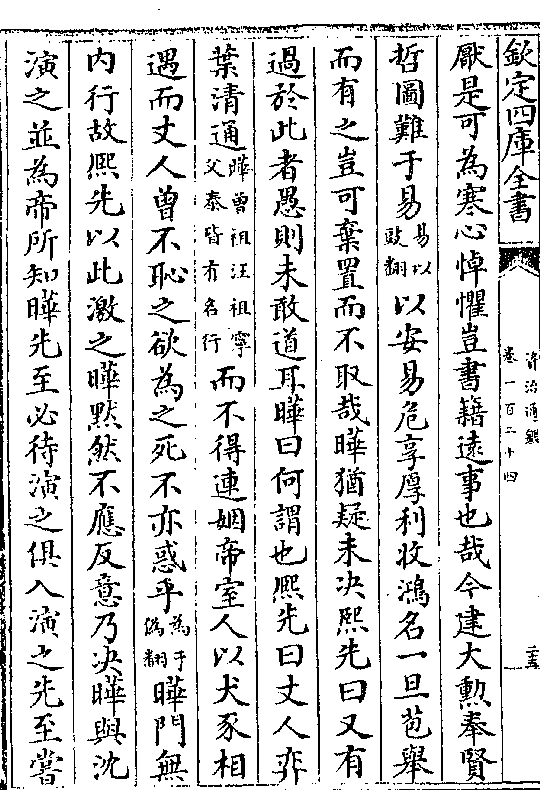 欽定四庫全書
資治通鑑
卷一百二十四
二十五
厭是可為寒心悼懼豈書籍遠事也哉今建大勲奉賢
哲圖難于易易以豉翻以安易危享厚利收鴻名一旦苞舉
而有之豈可棄置而不取哉曄猶疑未決熙先曰又有
過於此者愚則未敢道耳曄曰何謂也熙先曰丈人奕
葉清通曄曾祖汪祖寧父泰皆有名行而不得連姻帝室人以犬豕相
遇而丈人曾不恥之欲為之死不亦惑乎為于偽翻曄門無
内行故熙先以此激之曄黙然不應反意乃决曄與沈
演之並為帝所知曄先至必待演之俱入演之先至嘗